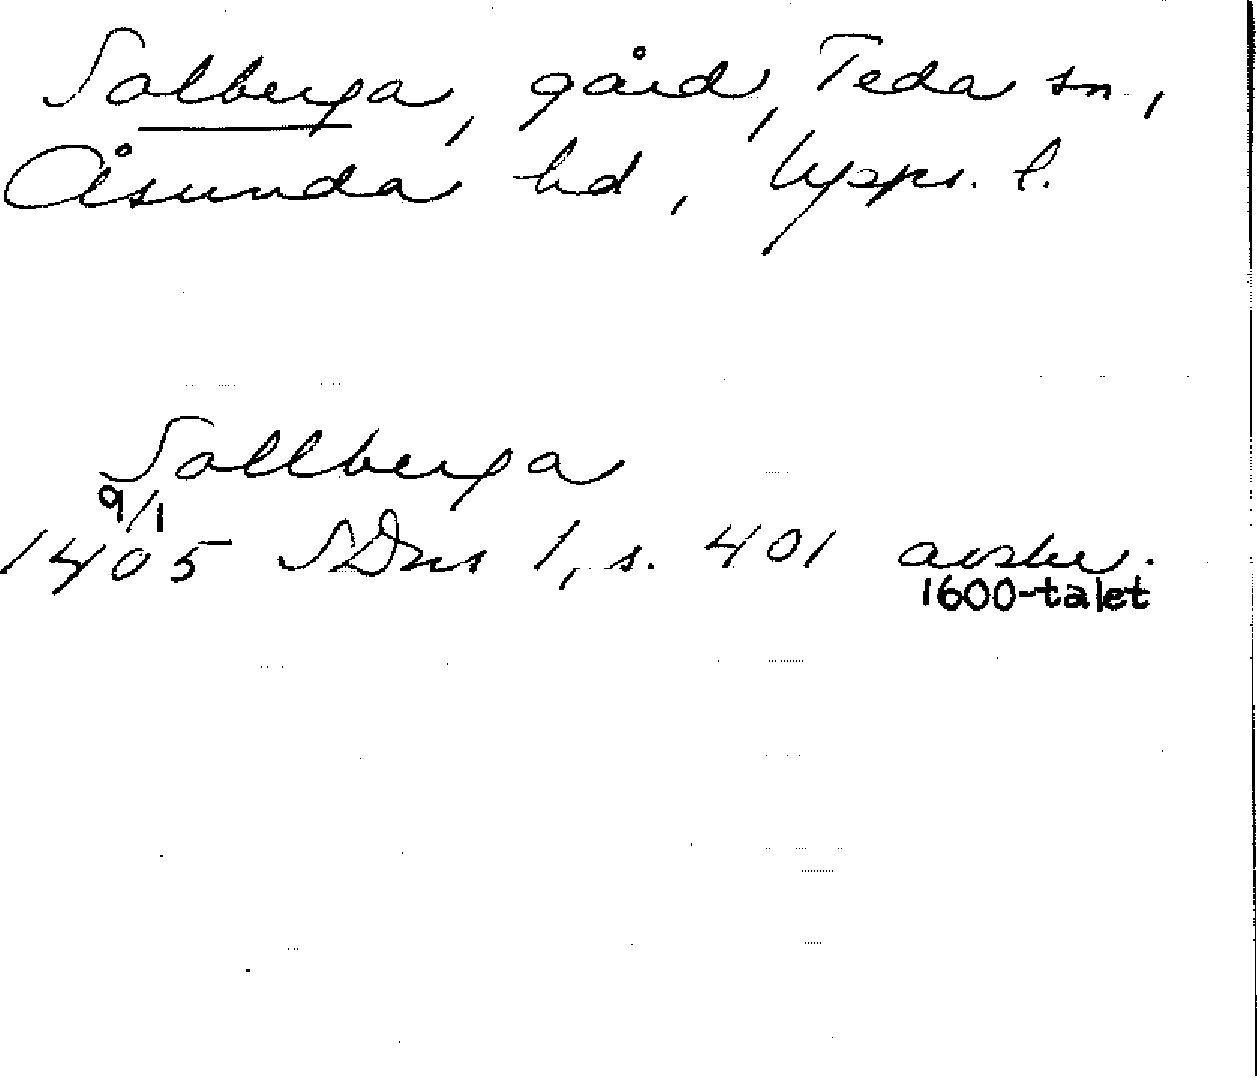 Solberga, gård, Teda sn,
Åsunda hd, Upps. l.
Sollberga
9/1
1405 SDns 1, s. 401 avskr.
1600-talet